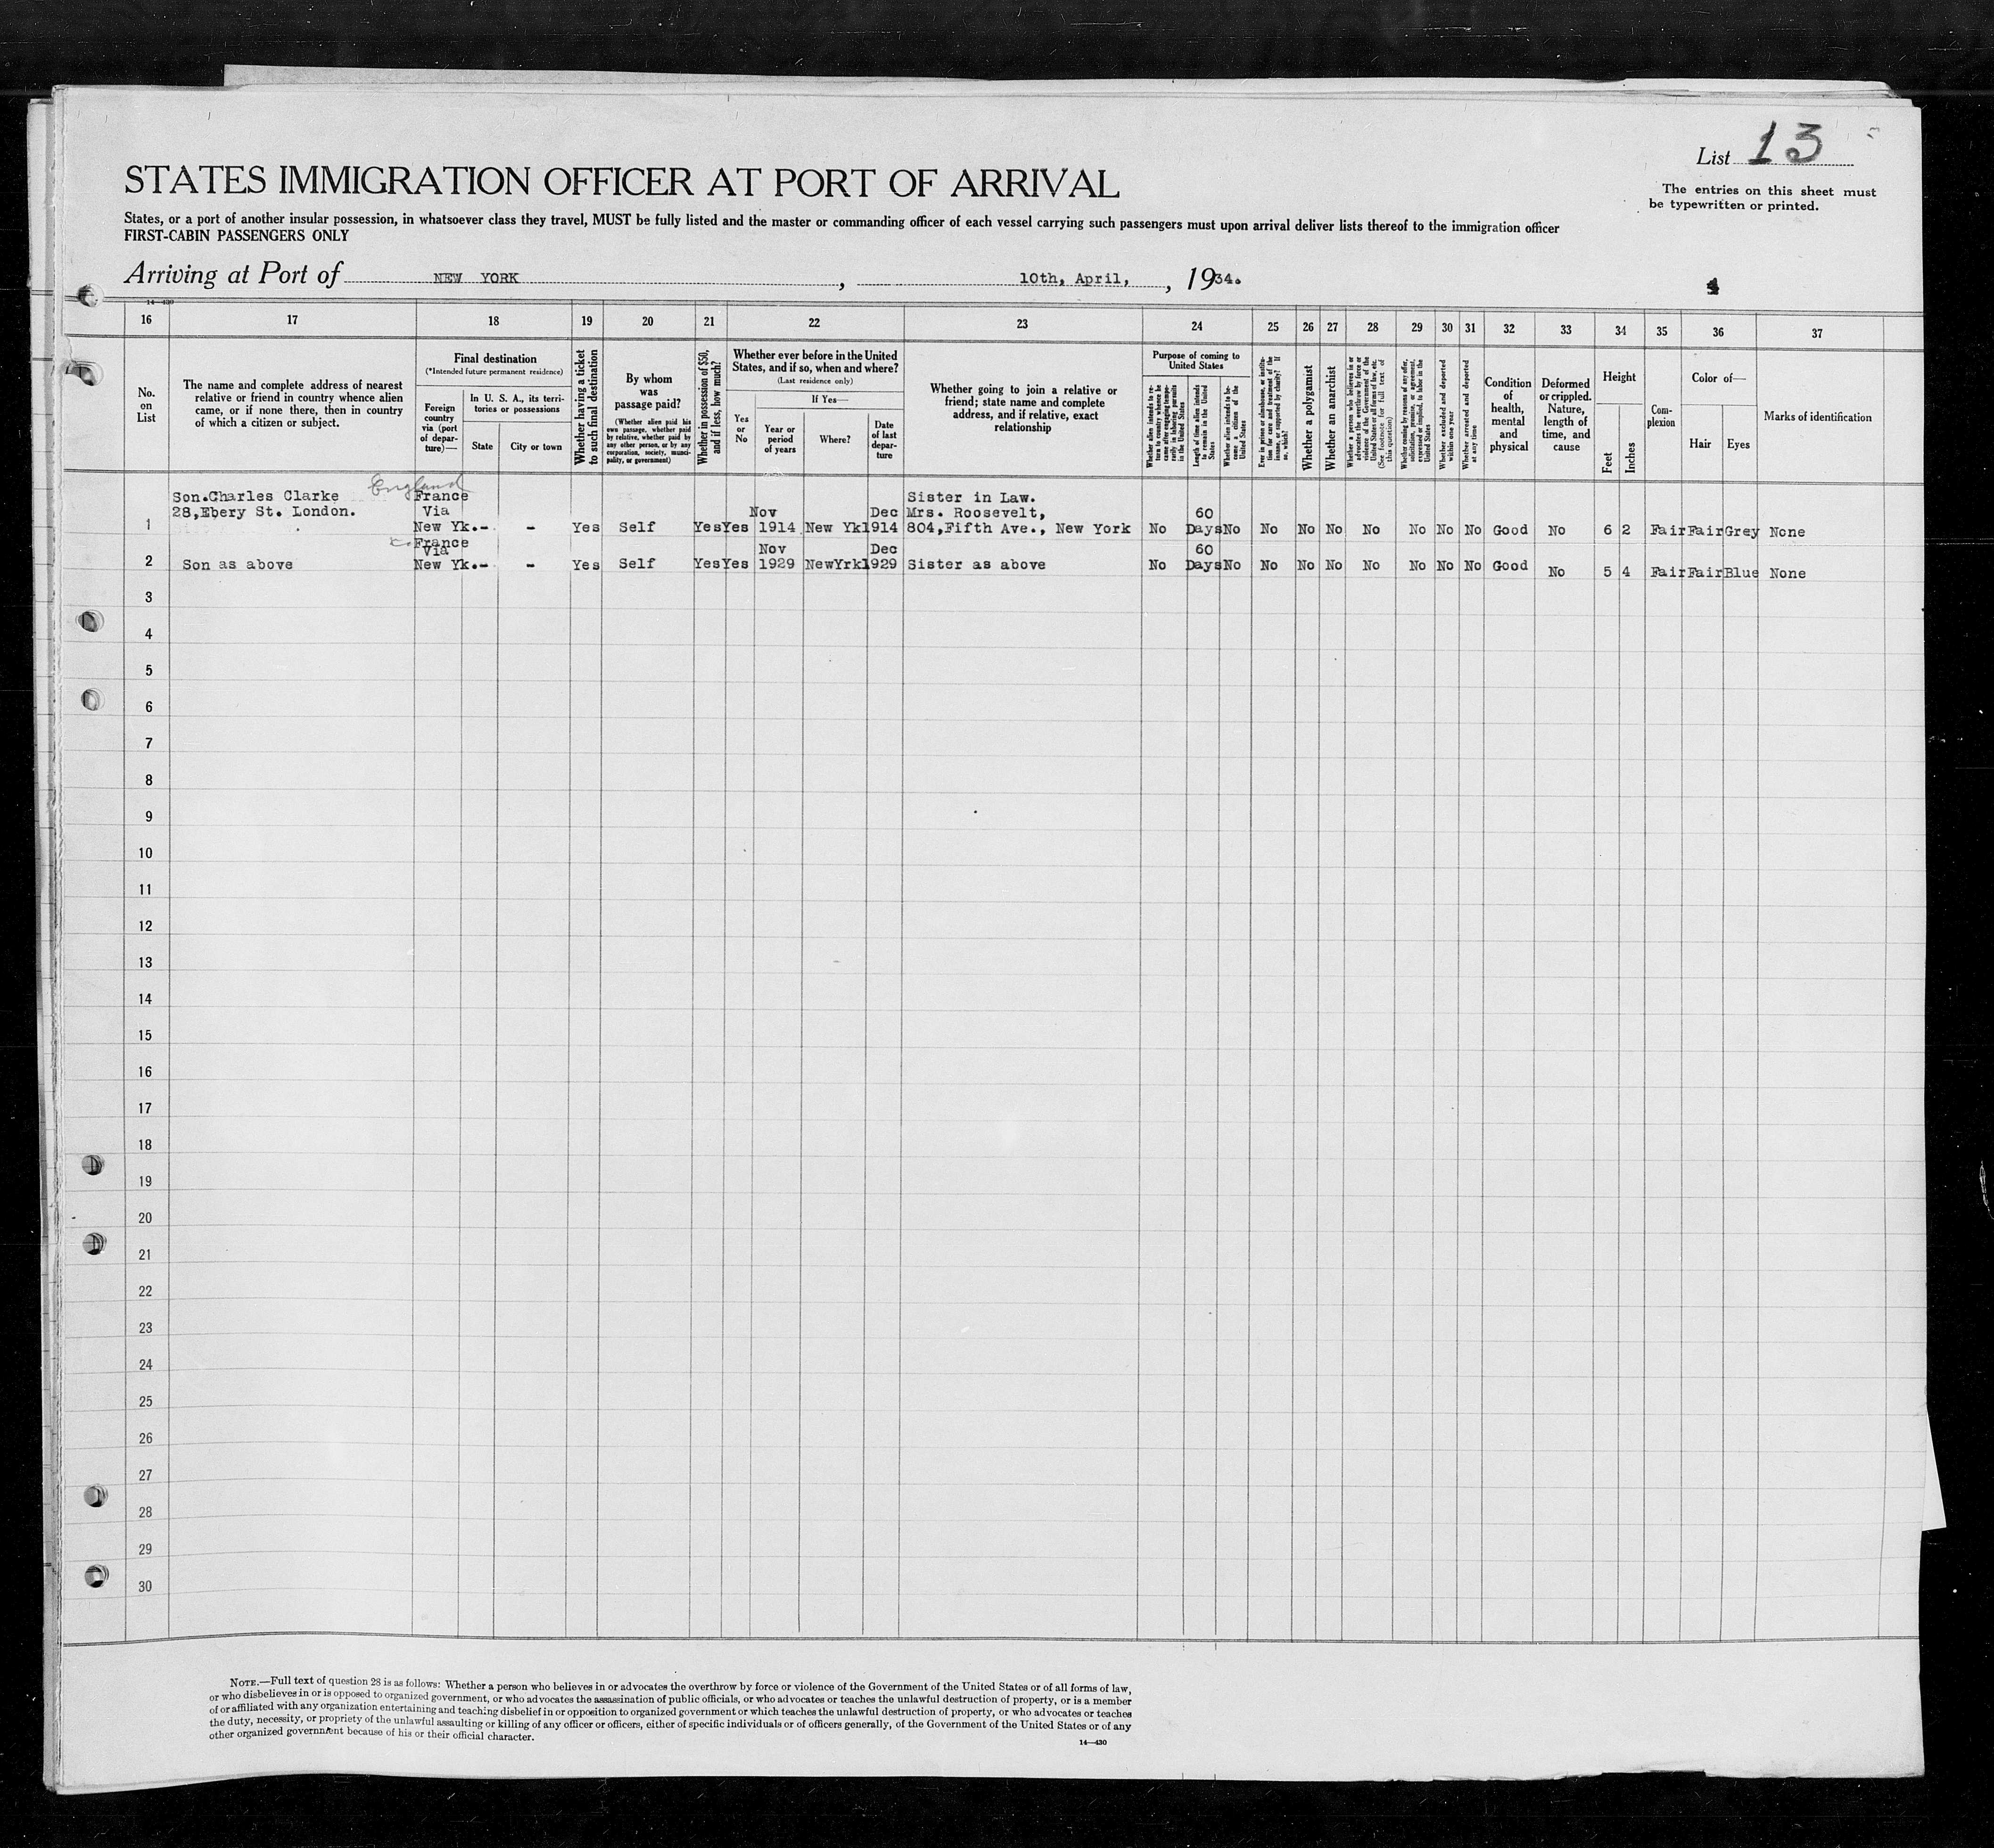 List 13
STATES IMMIGRATION OFFICER AT PORT OF ARRIVAL
The entries on this sheet must
be typewritten or printed.
States, or a port of another insular possession, in whatsoever class they travel, MUST be fully listed and the master or commanding officer of each vessel carrying such passengers must upon arrival deliver lists thereof to the immigration officer
FIRST-CABIN PASSENGERS ONLY
Arriving at Port of NEW YORK, 10th, April, , 1934.
14—430
16 17 18 19 20 21 22 23 24 25 26 27 28 29 30 31 32 33 34 35 36 37
No.
on
List
The name and complete address of nearest
relative or friend in country whence alien
came, or if none there, then in country
of which a citizen or subject.
Final destination
(*Intended future permanent residence)
Foreign
country
via (port
of depar-
ture)—
In U. S. A., its terri-
tories or possessions
State
City or town
Whether having a ticket
to such final destination
By whom
was
passage paid?
(Whether alien paid his
own passage, whether paid
by relative, whether paid by
any other person, or by any
corporation, society, munici-
pality, or government)
Whether in possession of $50,
and if less, how much?
Whether ever before in the United
States, and if so, when and where?
(Last residence only)
Yes
or
No
If Yes—
Year or
period
of years
Where?
Date
of last
depar-
ture
Whether going to join a relative or
friend; state name and complete
address, and if relative, exact
relationship
Purpose of coming to
United States
Whether alien intends to re-
turn to country whence he
came after engaging tempo-
rarily in laboring pursuits
in the United States
Length of time alien intends
to remain in the United
States
Whether alien intends to be-
come a citizen of the
United States
Ever in prison or almshouse, or institu-
tion for care and treatment of the
insane, or supported by charity? If
so, which?
Whether a polygamist
Whether an anarchist
Whether a person who believes in or
advocates the overthrow by force or
violence of the Government of the
United States or all forms of law, etc.
(See footnote for full text of
this question)
Whether coming by reasons of any offer,
solicitation, promise, or agreement,
expressed or implied, to labor in the
United States
Whether excluded and deported
within one year
Whether arrested and deported
at any time
Condition
of
health,
mental
and
physical
Deformed
or crippled.
Nature,
length of
time, and
cause
Height
Feet
Inches
Com-
plexion
Color of—
Hair
Eyes
Marks of identification
England
Son.Charles Clarke France Sister in Law.
28,Ebery St. London. Via Nov Dec Mrs. Roosevelt, 60
1 New Yk.- - Yes Self Yes Yes 1914 New Yk 1914 804,Fifth Ave., New York No Days No No No No No No No No Good No 6 2 Fair Fair Grey None
France
Via Nov Dec 60
2 Son as above New Yk.- - Yes Self Yes Yes 1929 NewYrk 1929 Sister as above No Days No No No No No No No No Good No 5 4 Fair Fair Blue None
3
4
5
6
7
8
9
10
11
12
13
14
15
16
17
18
19
20
21
22
23
24
25
26
27
28
29
30
NOTE.—Full text of question 28 is as follows: Whether a person who believes in or advocates the overthrow by force or violence of the Government of the United States or of all forms of law,
or who disbelieves in or is opposed to organized government, or who advocates the assassination of public officials, or who advocates or teaches the unlawful destruction of property, or is a member
of or affiliated with any organization entertaining and teaching disbelief in or opposition to organized government or which teaches the unlawful destruction of property, or who advocates or teaches
the duty, necessity, or propriety of the unlawful assaulting or killing of any officer or officers, either of specific individuals or of officers generally, of the Government of the United States or of any
other organized government because of his or their official character.
14—430